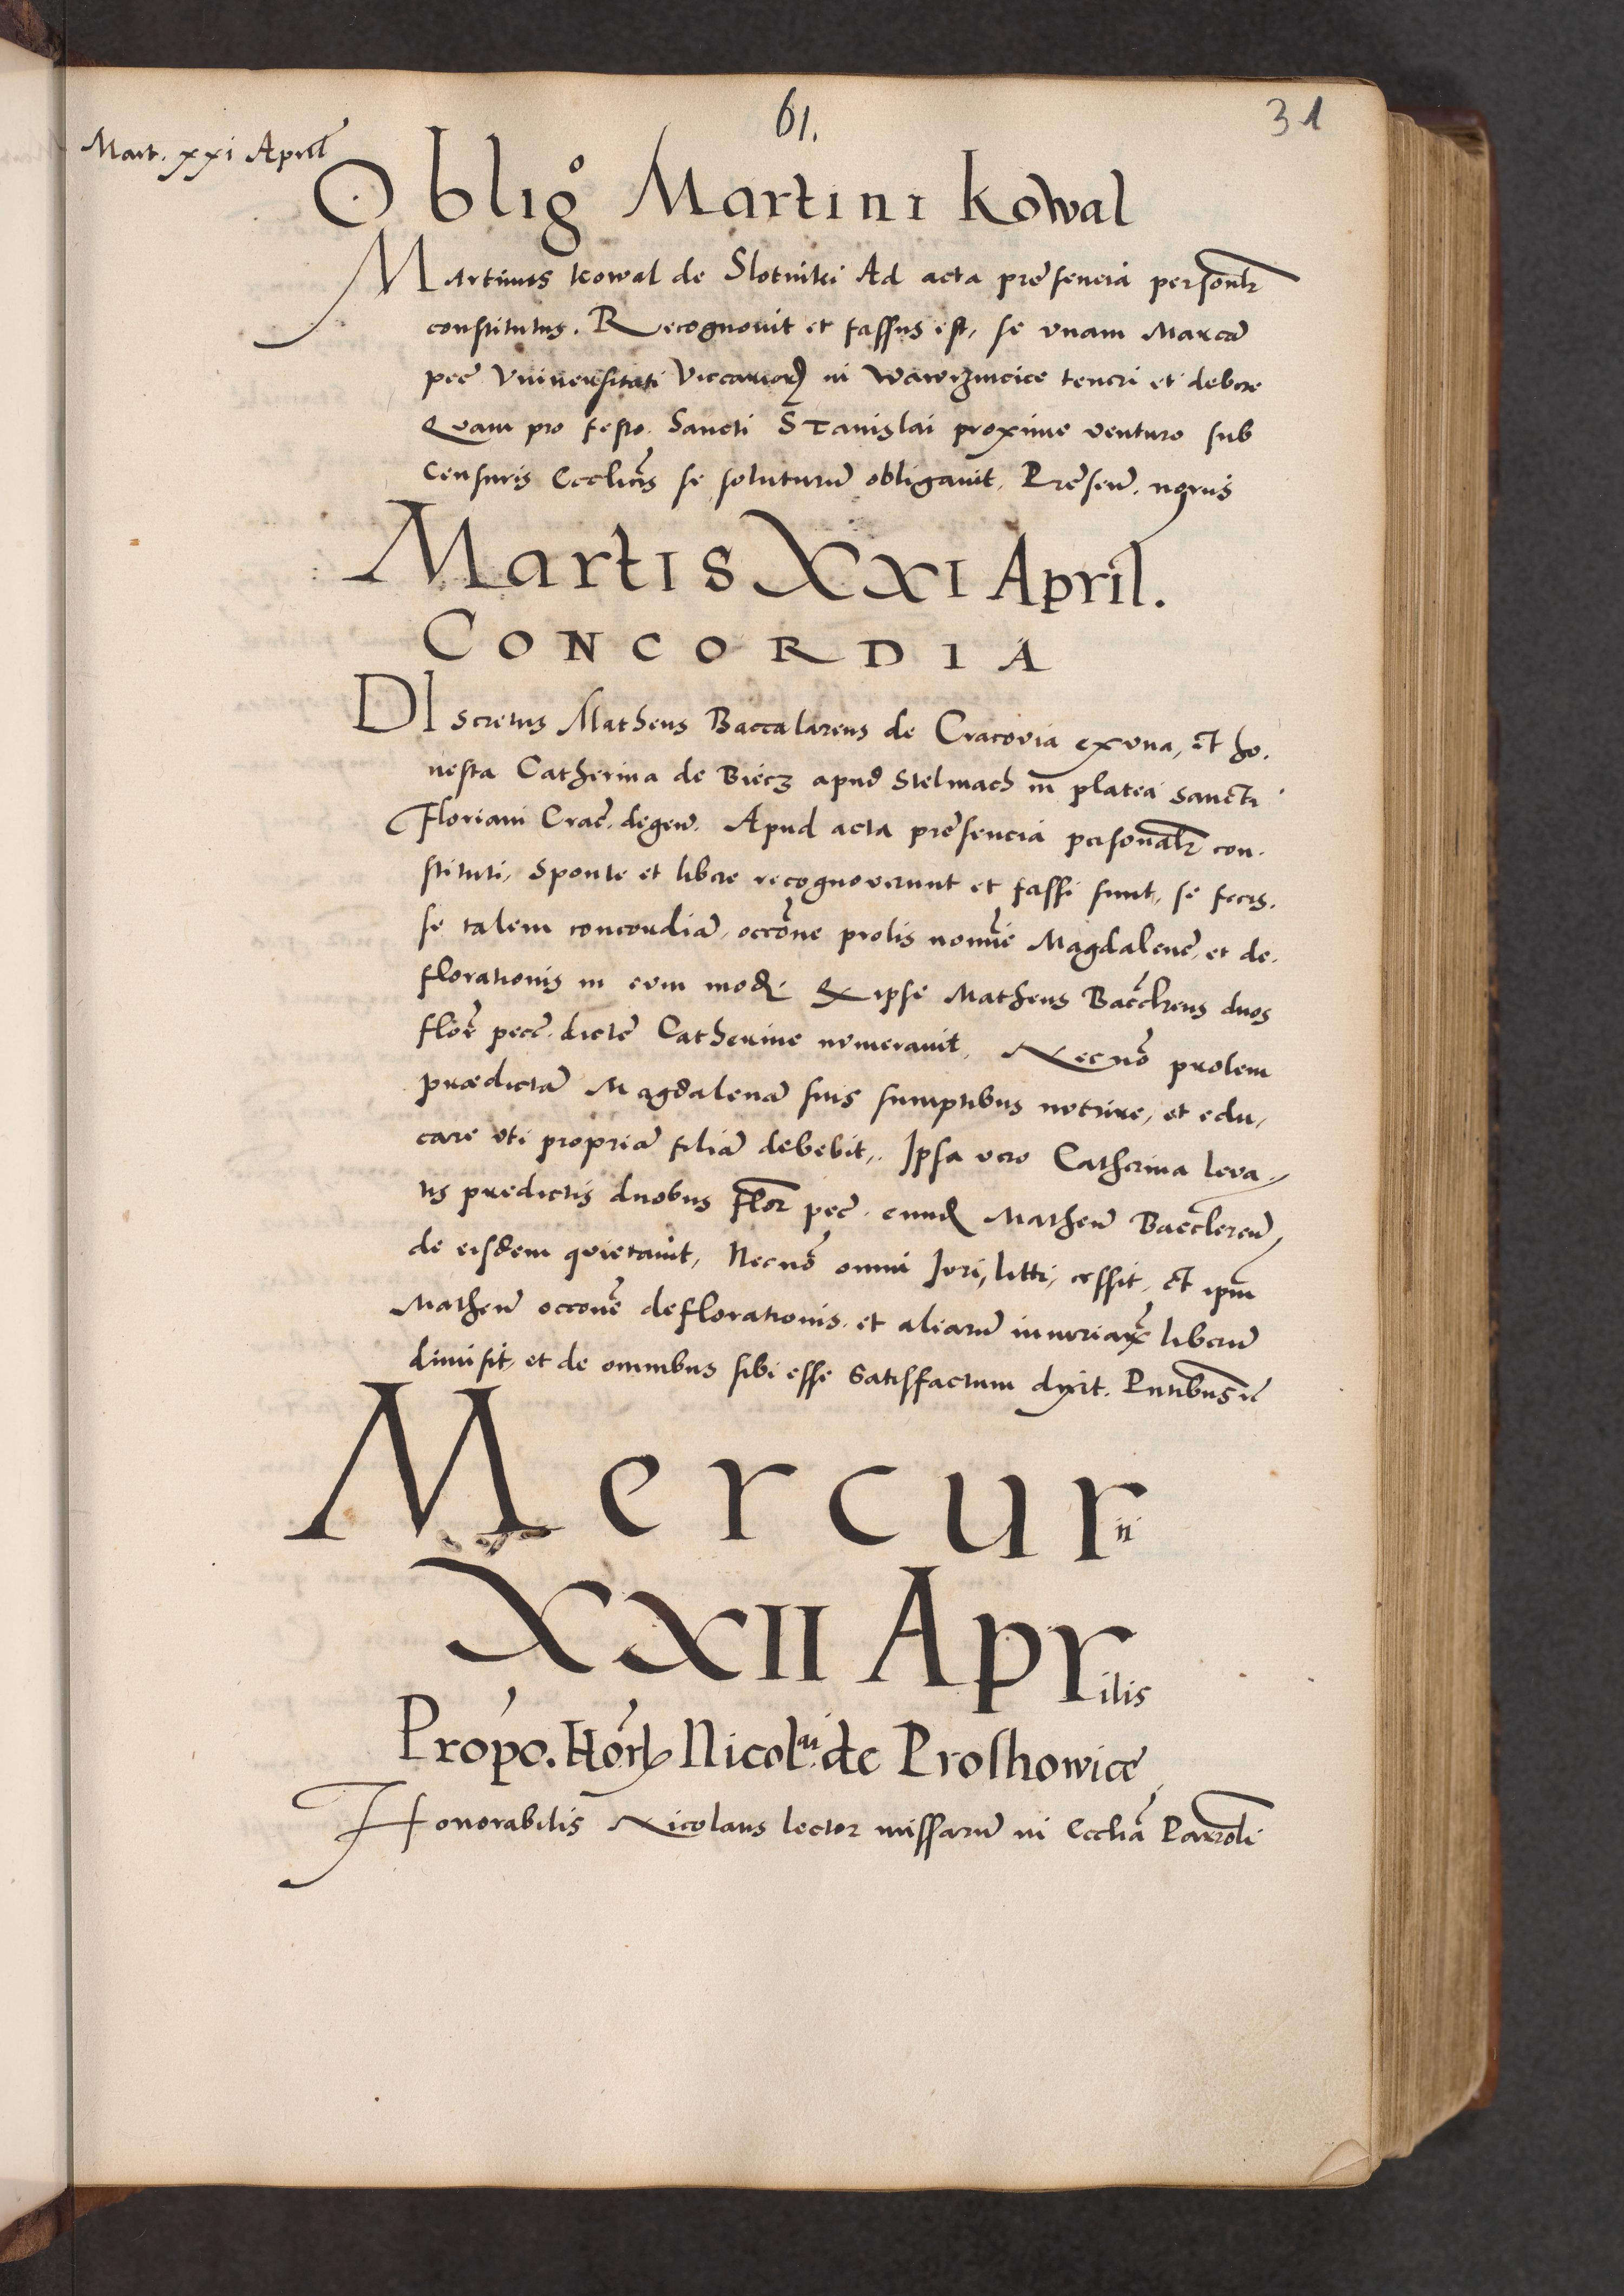 61.
31
Mart. xxi April
Obligo Martini Kowal
Martinus Kowal de Slotniki Ad acta presencia personlr
constitutus. Recognouit et fassus est, se vnam Marcã
pec Vniuersitati Viccarior in Wawrzincice teneri et debere
Quam pro festo Sancti Stanislai proxime venturo sub
Censuris Ecclicis se soluturũ obligauit. Presen. norus
Martis XXI April.
CONCORDIA
DIscretus Matheus Baccalareus de Cracovia exvna, et ho.
nesta Catherina de Biecz apud Stelmach in platea sancti
Floriani Crac. degen. Apud acta presencia personalr con.
stituti, Sponte et libere recognoverunt et fassi sunt, se fecis.
se talem concordiã, occõne prolis nomine Magdalene, et de.
florationis in eum mod. Q ipse Matheus Bacclreus duos
flor pece. dicte Catherine numerauit. Necnõ prolem
prædictã Magdalenã suis sumptibus nutrire, et edu,
care vti propriã filiã debebit,. Ipsa vero Catherina leva,
tis predictis duobus flor pec. eund Matheũ Bacclereũ
de eisdem quietauit, Necnõ omni Iuri, litti, cessit, et ipm
Matheũ occone deflorationis. et aliarũ iniuriar liberũ
dimisit, et de omnibus sibi esse Satisfactum dixit. Pntibus ic
Mercurii
XXII Aprilis
Propo. Honrl Nicolai de Proshowice
Honorabilis Nicolaus lector missarũ in Eccliã Parroli